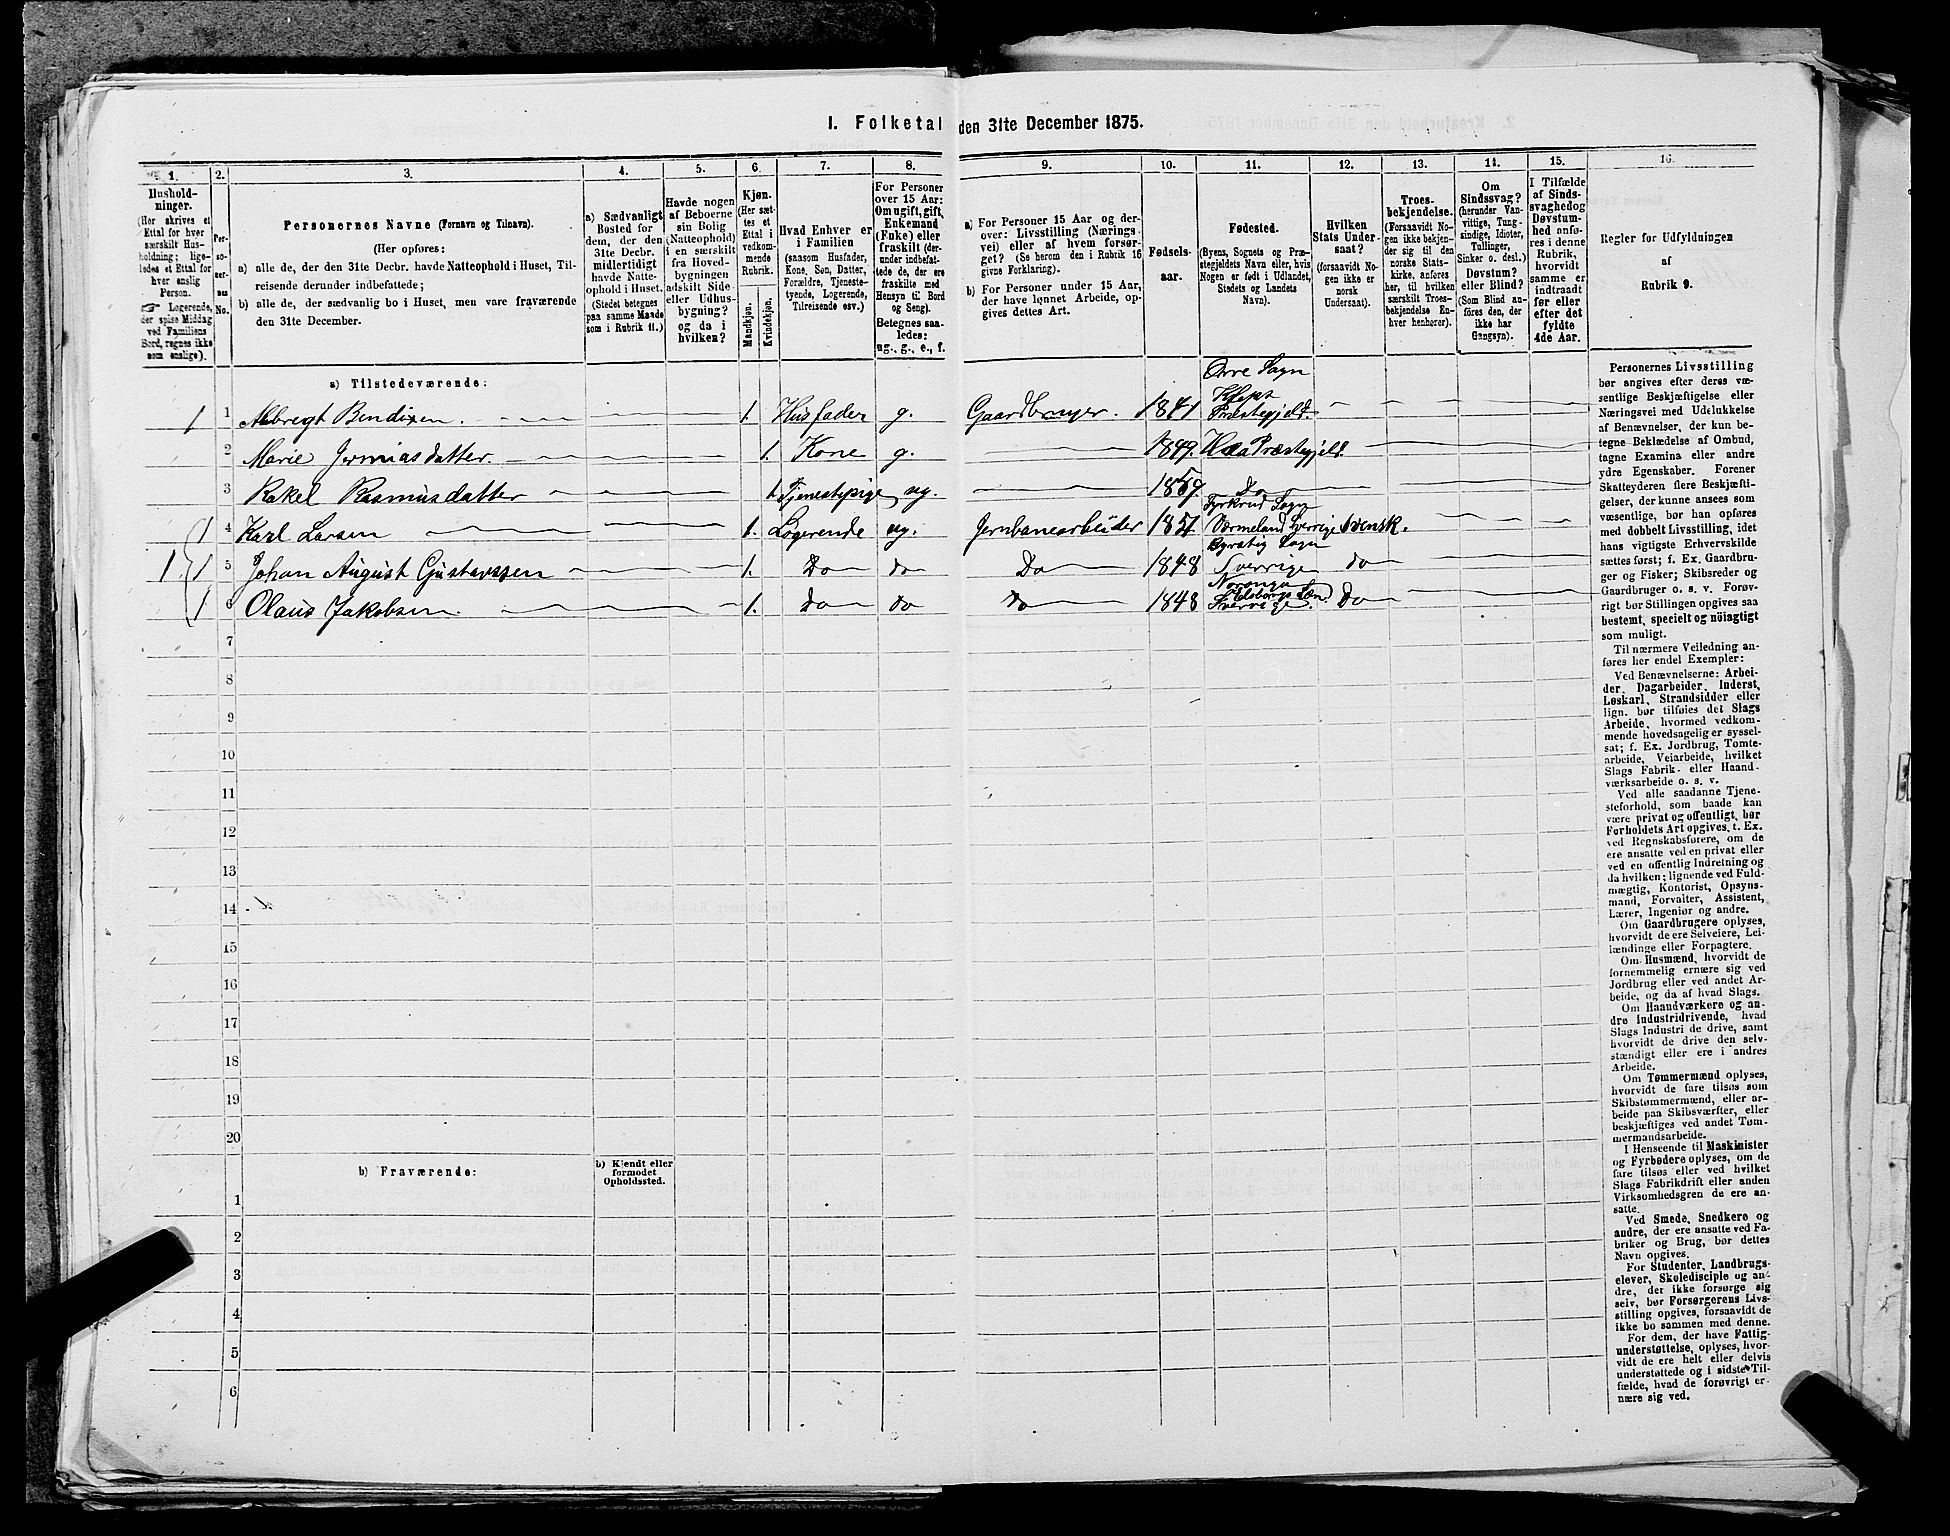 I. Folketal den 31te December 1875.
1. 2. 3. 4. 5. 6. 7. 8. 9. 10. 11. 12. 13. 14. 15. 16.
Hushold-
ninger.
(Her skrives et
Ettal for hver
særskilt Hus-
holdning; lige-
ledes et Ettal for
hver enslig
Person.
Logerende,
der spise Middag
ved Familiens
Bord, regnes ikke
som enslige).
Per-
so-
ner-
nes
No.
Personernes Navne (Fornavn og Tilnavn).
(Her opføres:
a) alle de, der den 31te Decbr. havde Natteophold i Huset, Til-
reisende derunder indbefattede;
b) alle de, der sædvanlig bo i Huset, men vare fraværende
den 31te December.
a) Sædvanligt
Bosted for
dem, der den
31te Decbr.
midlertidigt
havde Natte-
ophold i Huset.
(Stedet betegnes
paa samme Maade
som i Rubrik 11.)
Havde nogen
af Beboerne
sin Bolig
(Natteophold)
i en særskilt
fra Hoved-
bygningen
adskilt Side-
eller Udhus-
bygning?
og da i
hvilken?
Kjøn.
(Her sæt-
tes et
Ettal i
vedkom-
mende
Rubrik.
Mandkjøn.
Kvindekjøn.
Hvad Enhver er
i Familien
(saasom Husfader,
Kone, Søn, Datter,
Forældre, Tjeneste-
tyende, Logerende,
Tilreisende osv.)
For Personer
over 15 Aar:
Om ugift, gift,
Enkemand
(Enke) eller
fraskilt (der-
under indbefat-
tede de, der ere
fraskilte med
Hensyn til Bord
og Seng).
Betegnes saa-
ledes:
ug., g., e., f.
a) For Personer 15 Aar og der-
over: Livsstilling (Nærings-
vei) eller af hvem forsør-
get? (Se herom den i Rubrik 16
givne Forklaring).
b) For Personer under 15 Aar,
der have lønnet Arbeide, op-
gives dettes Art.
Fødsels-
aar.
Fødested.
(Byens, Sognets og Præ-
stegjeldets Navn eller, hvis
Nogen er født i Udlandet,
Stedets og Landets
Navn).
Hvilken
Stats Under-
saat?
(forsaavidt No-
gen ikke er
norsk
Undersaat).
Troes-
bekjendelse.
(Forsaavidt No-
gen ikke bekjen-
der sig til den
norske Stats-
kirke, anføres
her, til hvilken
særskilt Troes-
bekjendelse En-
hver henhører).
Om
Sindssvag?
(herunder Van-
vittige, Tung-
sindige, Idioter,
Tullinger,
Sinker o. desl.)
Døvstum?
eller Blind?
(Som Blind an-
føres den, der
ikke har
Gangsyn).
I Tilfælde
af Sinds-
svaghed og
Døvstum-
hed anfø-
res i denne
Rubrik,
hvorvidt
samme er
indtraadt
før eller
efter det
fyldte
4de Aar.
Regler for Udfyldningen
af
Rubrik 9.
a) Tilstedeværende:
1 1 Albregt Bendixen. 1. Husfader g. Gaardbruger. 1841 Orre Sogn Kleps Præstegjeld.
2 Marie Jermiasdatter. 1. Kone g. 1849. Haa Præstegjeld.
3 Rakel Rasmusdatter 1 Tjenestepige ug. 1859. Do
1 4 Karl Larsen 1. Logerende ug. Jernbanearbeider 1851. Sogn Værmeland Sverrige Svensk.
1 1 5 Johan August Gustavssen 1. Do do Do 1848 Sogn Sverrige do
1 6 Olaus Jakobsen. 1. Do Do Do 1848 Sverrige. Do
7
8
9
10
11
12
13
14
15
16
17
18
19
20
b) Fraværende:
b) Kjendt eller
formodet
Opholdssted.
1
2
3
4
5
6
Personernes Livsstilling
bør angives efter deres væ-
sentlige Beskjæftigelse eller
Næringsvei med Udelukkelse
af Benævnelser, der kun be-
tegne Beklædelse af Ombud,
tagne Examina eller andre
ydre Egenskaber. Forener
Skatteyderen flere Beskjæfti-
gelser, der kunne ansees som
væsentlige, bør han opføres
med dobbelt Livsstilling, idet
hans vigtigste Erhvervskilde
sættes først; f. Ex. Gaardbru-
ger og Fisker; Skibsreder og
Gaardbruger o. s. v. Forøv-
rigt bør Stillingen opgives saa
bestemt, specielt og nöiagtigt
som muligt.
Til nærmere Veiledning an-
føres her endel Exempler:
Ved Benævnelserne: Arbei-
der, Dagarbeider, Inderst,
Løskarl, Strandsidder eller
lign. bør tilføies det Slags
Arbeide, hvormed vedkom-
mende hovedsagelig er syssel-
sat; f. Ex. Jordbrug, Tomte-
arbeide, Veiarbeide, hvilket
Slags Fabrik- eller Haand-
værksarbeide o. s. v.
Ved alle saadanne Tjene-
steforhold, som baade kan
være privat og offentligt, bør
Forholdets Art opgives, t. Ex.
ved Regnskabsførere, om de
ere ansatte ved en privat eller
ved en offentlig Indretning og
da hvilken; lignende ved Fuld-
mægtig, Kontorist, Opsyns-
mand, Forvalter, Assistent,
Lærer, Ingeniør og andre.
Om Gaardbrugere oplyses,
hvorvidt de ere Selveiere, Lei-
lændinge eller Forpagtere.
Om Husmænd, hvorvidt de
fornemmelig ernære sig ved
Jordbrug eller ved andet Ar-
beide, og da af hvad Slags.
Om Haandværkere og an-
dre Industridrivende, hvad
Slags Industri de drive, samt
hvorvidt de drive den selv-
stændigt eller ere i andres
Arbeide.
Om Tømmermænd oplyses,
hvorvidt de fare tilsøs som
Skibstømmermænd, eller ar-
beide paa Skibsværfter, eller
beskjæftiges ved andet Tøm-
mermandsarbeide.
I Henseende til Maskinister
og Fyrbødere oplyses, om de
fare tilsøs eller ved hvilket
Slags Fabrikdrift eller anden
Virksomhedsgren de ere an-
satte.
Ved Smede, Snedkere og
andre, der ere ansatte ved Fa-
briker og Brug, bør dettes
Navn opgives.
For Studenter, Landbrugs-
elever, Skoledisciple og an-
dre, der ikke forsørge sig
selv, bør Forsørgerens Livs-
stilling opgives, forsaavidt de
ikke bo sammen med denne.
For dem, der have Fattig-
understøttelse, oplyses, hvor-
vidt de ere helt eller delvis
understøttede og i sidste Til-
fælde, hvad de forøvrigt er-
nære sig ved.